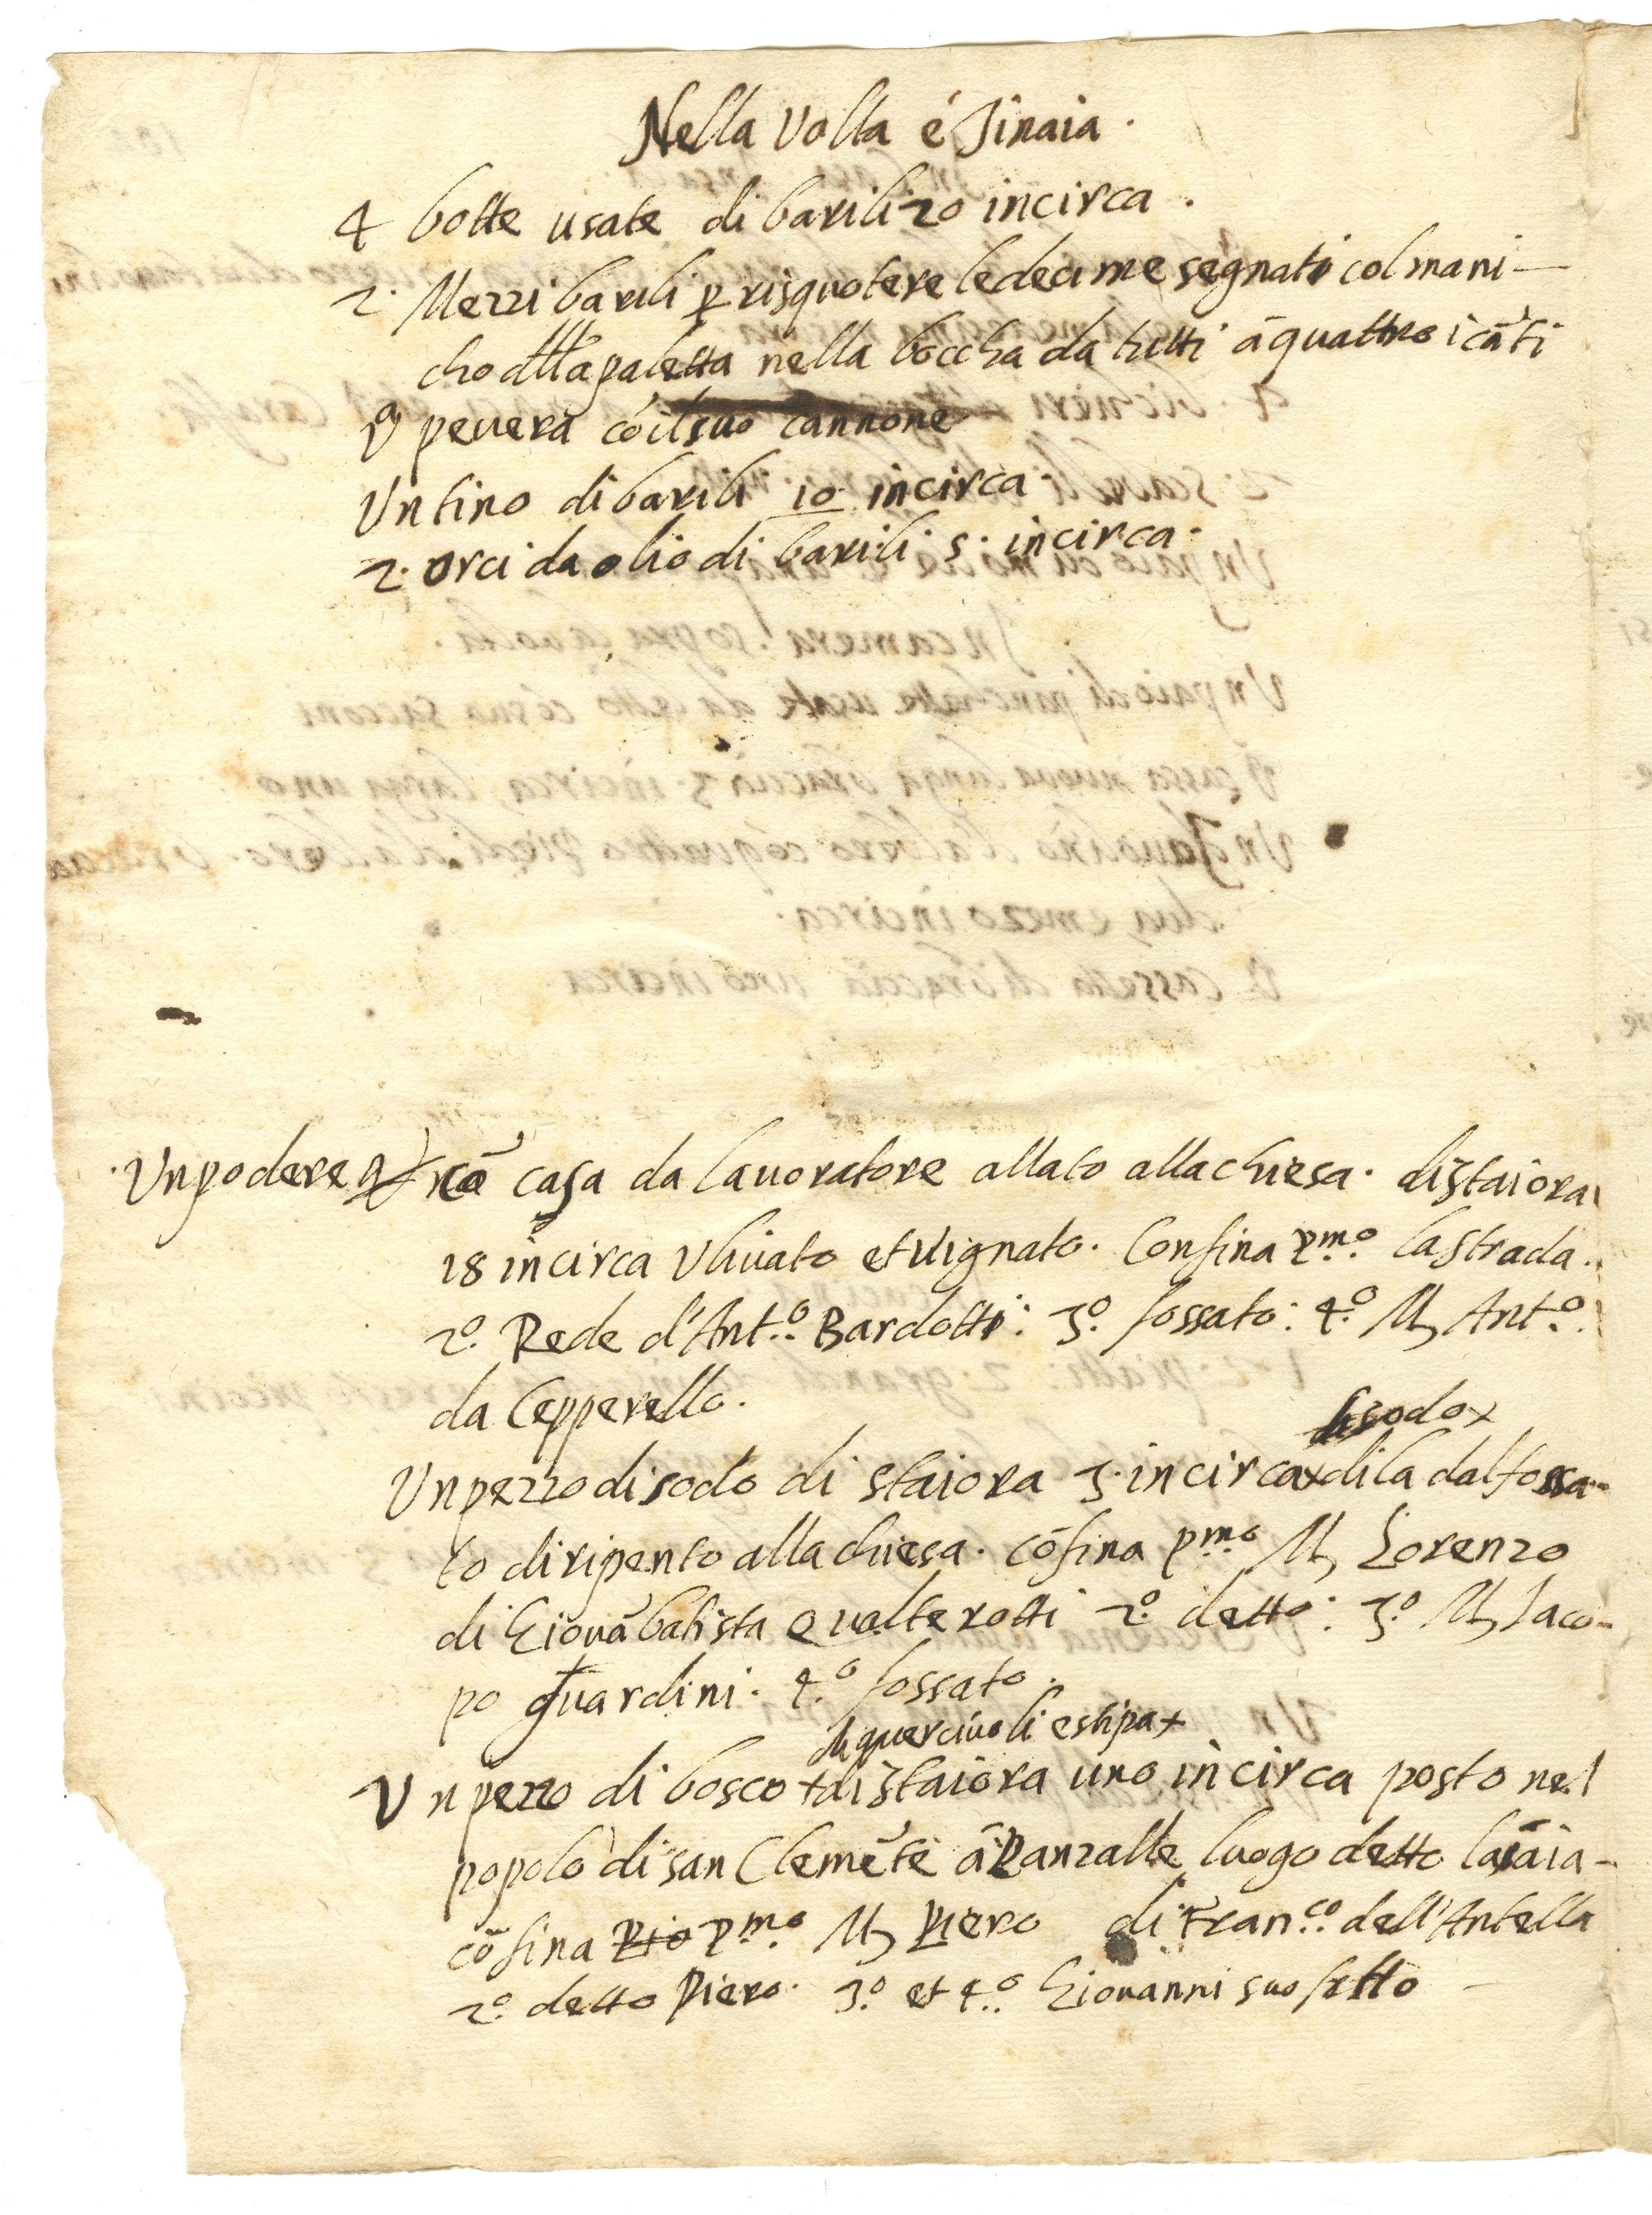 Nella Volta é Tinaia.
4 botte usate di barili 20 incirca.
2. Mezzi barili p risquotere ledecime segnati col mani-
cho della paletta nella boccha da tutti ā quattro i cāti
pevera cō il suo cannone
Un tino di barili 10 incirca.
2. orci da olio di barili 5. incirca.
Un podere cō casa da lavoratore allato alla chiesa. di staiora
18 incirca Ulivato et vignato. Confina p.mo la strada.
2.o Rede d'Ant.o Bardotti: 3.o fossato: 4.o M Ant.o
da Cepperello.
sodo x
Un pezzo di sodo di staiora 3. incirca x di la dal fossa-
to diripento alla chiesa. cōfina p.mo M Lorenzo
di Giovābatista Qualterotti 2.o detto: 3.o M Iaco-
po Guardini. 4.o fossato.
di quercivoli e stipa x
Un pezzo di bosco x di staiora uno incirca posto nel
popolo di san Clemēte ā Panzalle luogo detto
cōfina Pio p.mo M Piero di Fran.co dell'Antella
2.o detto Piero. 3.o et 4.o Giovanni suo frtto